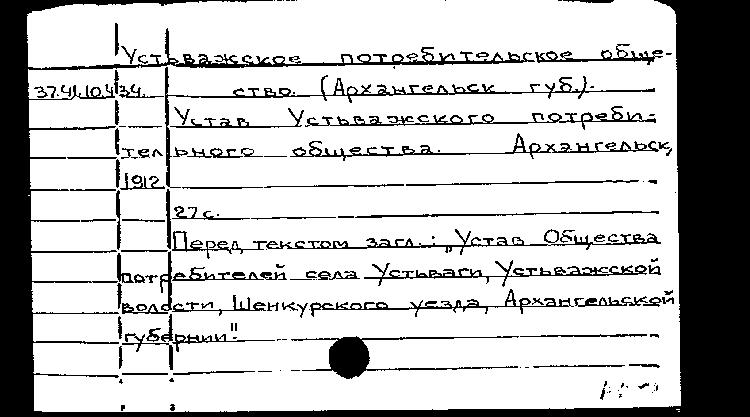 Устьважское потребительское обще-
37.41.10.434. ство. (Архангельск губ.).
Устав Устьважского потреби-
тельного общества. Архангельск,
1912
27 с.
Перед текстом загл.: „Устав Общества
потребителей села Устьваги, Устьважской
волости, Шенкурского уезда, Архангельской
губернии".